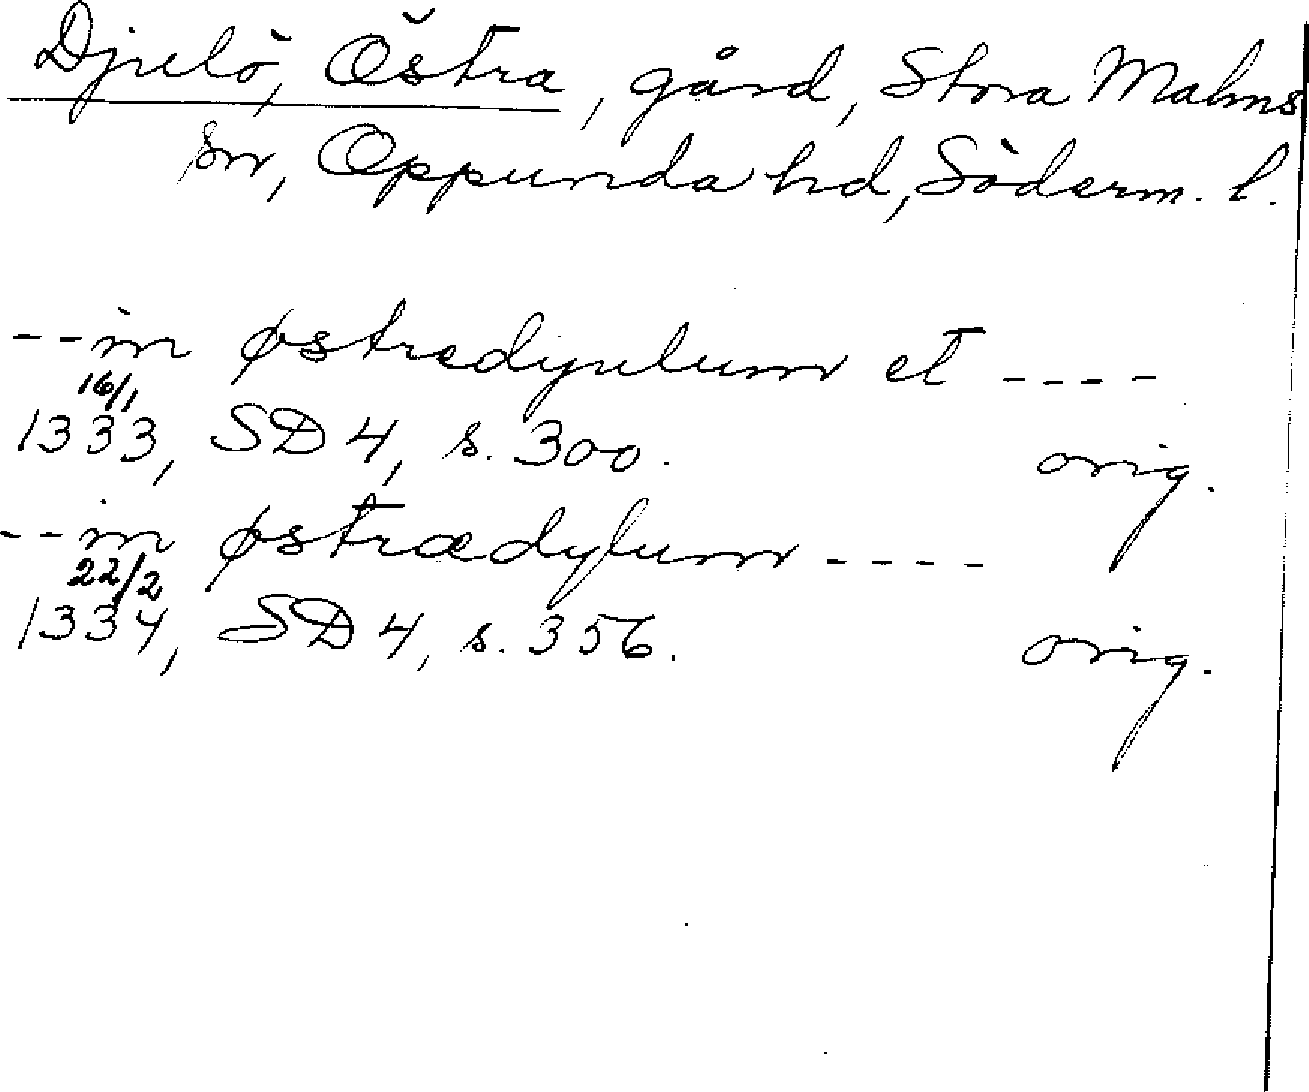 Djulö, Östra, gård, Stora Malms
sn, Oppunda hd, Söderm. l.
--in østrædyulum et ----
16/1
1333, SD 4, s. 300. orig.
--in østrædylum ----
22/2
1334, SD 4, s. 356. orig.